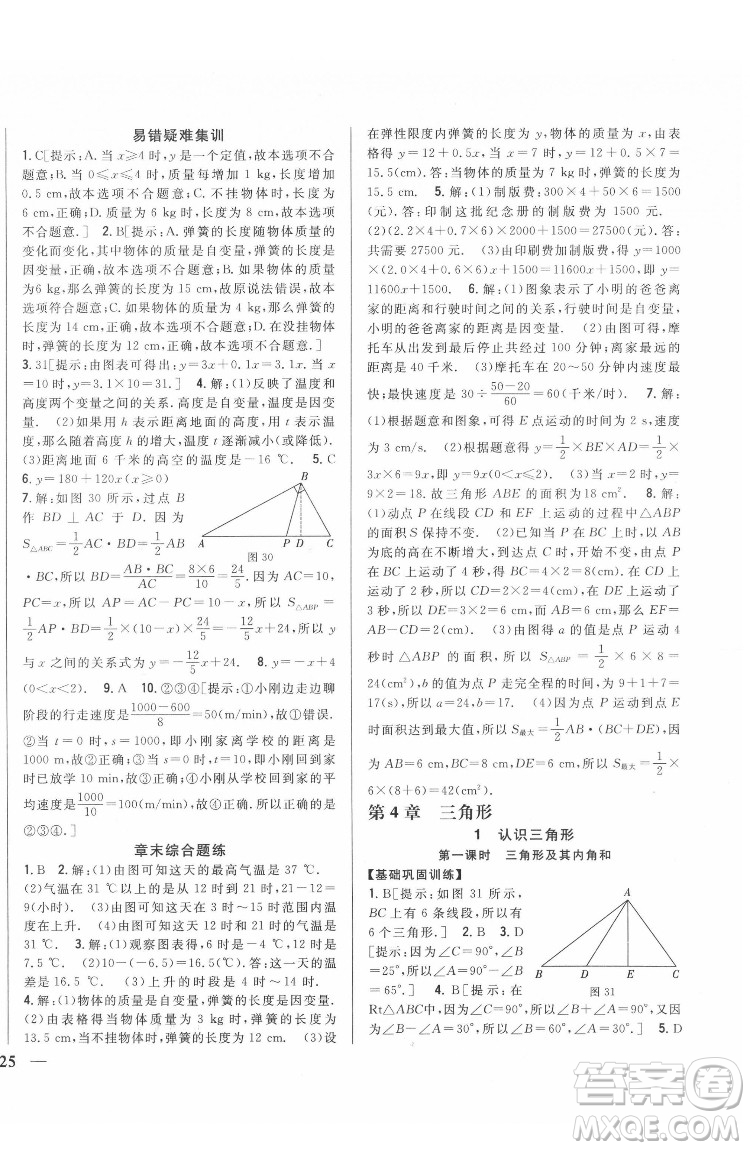 易错疑难集训
1. C[提示:A. 当 x≥4 时,y 是一个定值,故本选项不合
题意;B. 当 0≤x≤4 时,物体质量每增加 1 kg,弹簧增加
0.5 cm,故本选项不合题意;C. 不挂物体时,弹簧的长度为
6 cm,正确;D. 质量为 6 kg 时,弹簧长度为 8 cm,故本选项
不合题意.] 2. B[提示:A. 弹簧的长度随物体质量的
变化而变化,其中物体的质量是自变量,弹簧的长度是
因变量,正确,故本选项不合题意;B. 如果物体的质量
为6 kg,那么弹簧的长度为 15 cm,故原说法错误,故本
选项符合题意;C. 如果物体的质量为 4 kg,那么弹簧的
长度为 14 cm,正确,故本选项不合题意;D. 在没挂物体
时,弹簧的长度为 12 cm,正确,故本选项不合题意.]
3. 31[提示:由图表可得出:y=3x+0.1x=3.1x. 当 x=
10 时,y=3.1×10=31.] 4. 解:(1)反映了温度和
高度两个变量之间的关系. (2)如果用 h 表示距离地面的高度,用 t 表示温
度,那么随着高度 h 的增大,温度 t 逐渐减小(或降低).
(3)距离地面 6 千米的高空的温度是-16 ℃. 5. C
6. y=180+120x(x>0)
7. 解:如图 30 所示,过点 B
作 BD⊥AC 于点 D. 因为
S△ABC=1/2 AC·BD=1/2 AB
B
A P D C
图 30
·BC,所以 BD=AB·BC/AC=8×6/10=24/5. 因为 AC=10,
PC=x,所以 AP=AC-PC=10-x,所以 S△ABP=
1/2 AP·BD=1/2×(10-x)×24/5=-12/5 x+24,所以 y
与 x 之间的关系式为 y=-12/5 x+24. 8. y=-x+4
(0<x<2) 9. A 10. ②③④[提示:①小刚边走边聊
阶段的行走速度是 1000-600/8=50(m/min),故①错误.
②当 t=0 时,s=1000,即小刚家离学校的距离是
1000 m,故②正确;③当 s=0 时,t=10,即小刚回到家时
已放学 10 min,故③正确;④小刚从学校回到家的平
均速度是 1000/10=100(m/min),故④正确. 故答案为
②③④.]
章末综合题练
1. B 2. 解:(1)由图可知这天的最高气温是 37 ℃.
(2)气温在 31 ℃以上(含 31 ℃)持续的时间是 21-12=
9(小时). (3)由图可知这天在 3 时~15 时范围内温度
在上升. (4)由图可知这天 12 时和 21 时的温度是
31 ℃. 3. 解:(1)观察图表可知:这一天 12 时的温度是
7.5 ℃. (2)10-(-6.5)=16.5(℃). 答:这一天的温
差是 16.5 ℃. (3)上升的时段是 4 时~14 时.
4. 解:(1)物体的质量是自变量,弹簧的长度是因变量.
(2)由表格得当物体的质量为 3 kg 时,弹簧的长度为
13.5 cm;当不挂物体时,弹簧的长度为 12 cm. (3)设
25
在弹性限度内弹簧的长度为 y,物体的质量为 x,由表
格可知:y=12+0.5x. 当 x=7 时,y=12+0.5×7=
15.5(cm). 答:当物体的质量为 7 kg 时,弹簧的长度为
15.5 cm. 5. 解:(1)制版费:300×4+50×6=1500
(元). 答:印制这批纪念册的制版费为 1500 元.
(2)(2.2×4+0.7×6)×2000+1500=27500(元). 答:
共需要 27500 元. (3)由印刷费加制版费,即 y=
(2.0×4+0.6×6)x+1500=11600x+1500,即 y=
11600x+1500. 6. 解:(1)图象表示了小明的爸爸离
家的距离和行驶时间之间的关系,行驶时间是自变量,
小明的爸爸离家的距离是因变量. (2)由图可知:摩
托车从出发到最后停止共经过 100 分钟;离家最远的
距离为 40 千米. (3)摩托车在 20~50 分钟内行驶速度
最快,最快速度是 30÷50-20/60=60(千米/时). 7. 解:
(1)根据题意和图象,可得 E 点运动的时间为 2 s,速度
为 3 cm/s,所以 AE=6 cm,y=1/2×BE×AE=1/2×
3x×6=9x(0<x≤2). (2)当 x=2 时,y=9x=
9×2=18. 故三角形 ABE 的面积为18 cm². 8. 解:
(1)点 P 在线段 CD 和 EF 上运动的过程中△ABP
的面积 S 保持不变. (2)当点 P 运动时,△ABP 底边
的高在不断增大,到点 C 时,开始不变,由点 P 在 BC
上运动了 4 秒,所以 BC=4×2=8(cm). 在 DE 上运
动了 3 秒,所以 DE=3×2=6(cm),那么 EF=AB-
CD=6-4=2(cm). (3)图②中的 a 的值是点 P 运动
4 秒时△ABP 的面积,所以 S△ABP=1/2×6×8=
24(cm²),所以 a=24. b 的值是点 P 走完全程的时间,为 9+1+7=
17(s),所以 a=24,b=17. (4)当点 P 运动到 DE 上
时面积达到最大值,为 S最大=1/2 AB·(BC+DE),因为
AB=6 cm,BC=8 cm,DE=6 cm,所以 S最大=1/2
×6×(8+6)=42(cm²).
第 4 章 三角形
1 认识三角形
第一课时 三角形及其内角和
【基础巩固训练】
1. B[提示:如图 31 所示,
BC 上有 4 个点,所以共有
6 条线段,所以图中共有
6 个三角形.] 2. B
3. B[提示:∠C=90°,∠B
=25°,所以∠A=90°-∠B
=65°.] 4. D[提示:在
A
B D E C
图 31
Rt△ABC中,∠C=90°,则∠A+∠B=90°. 因为∠B=
2∠A,所以∠A+2∠A=90°,所以∠A=30°.] 5. D
答案卷
MXQE.COM